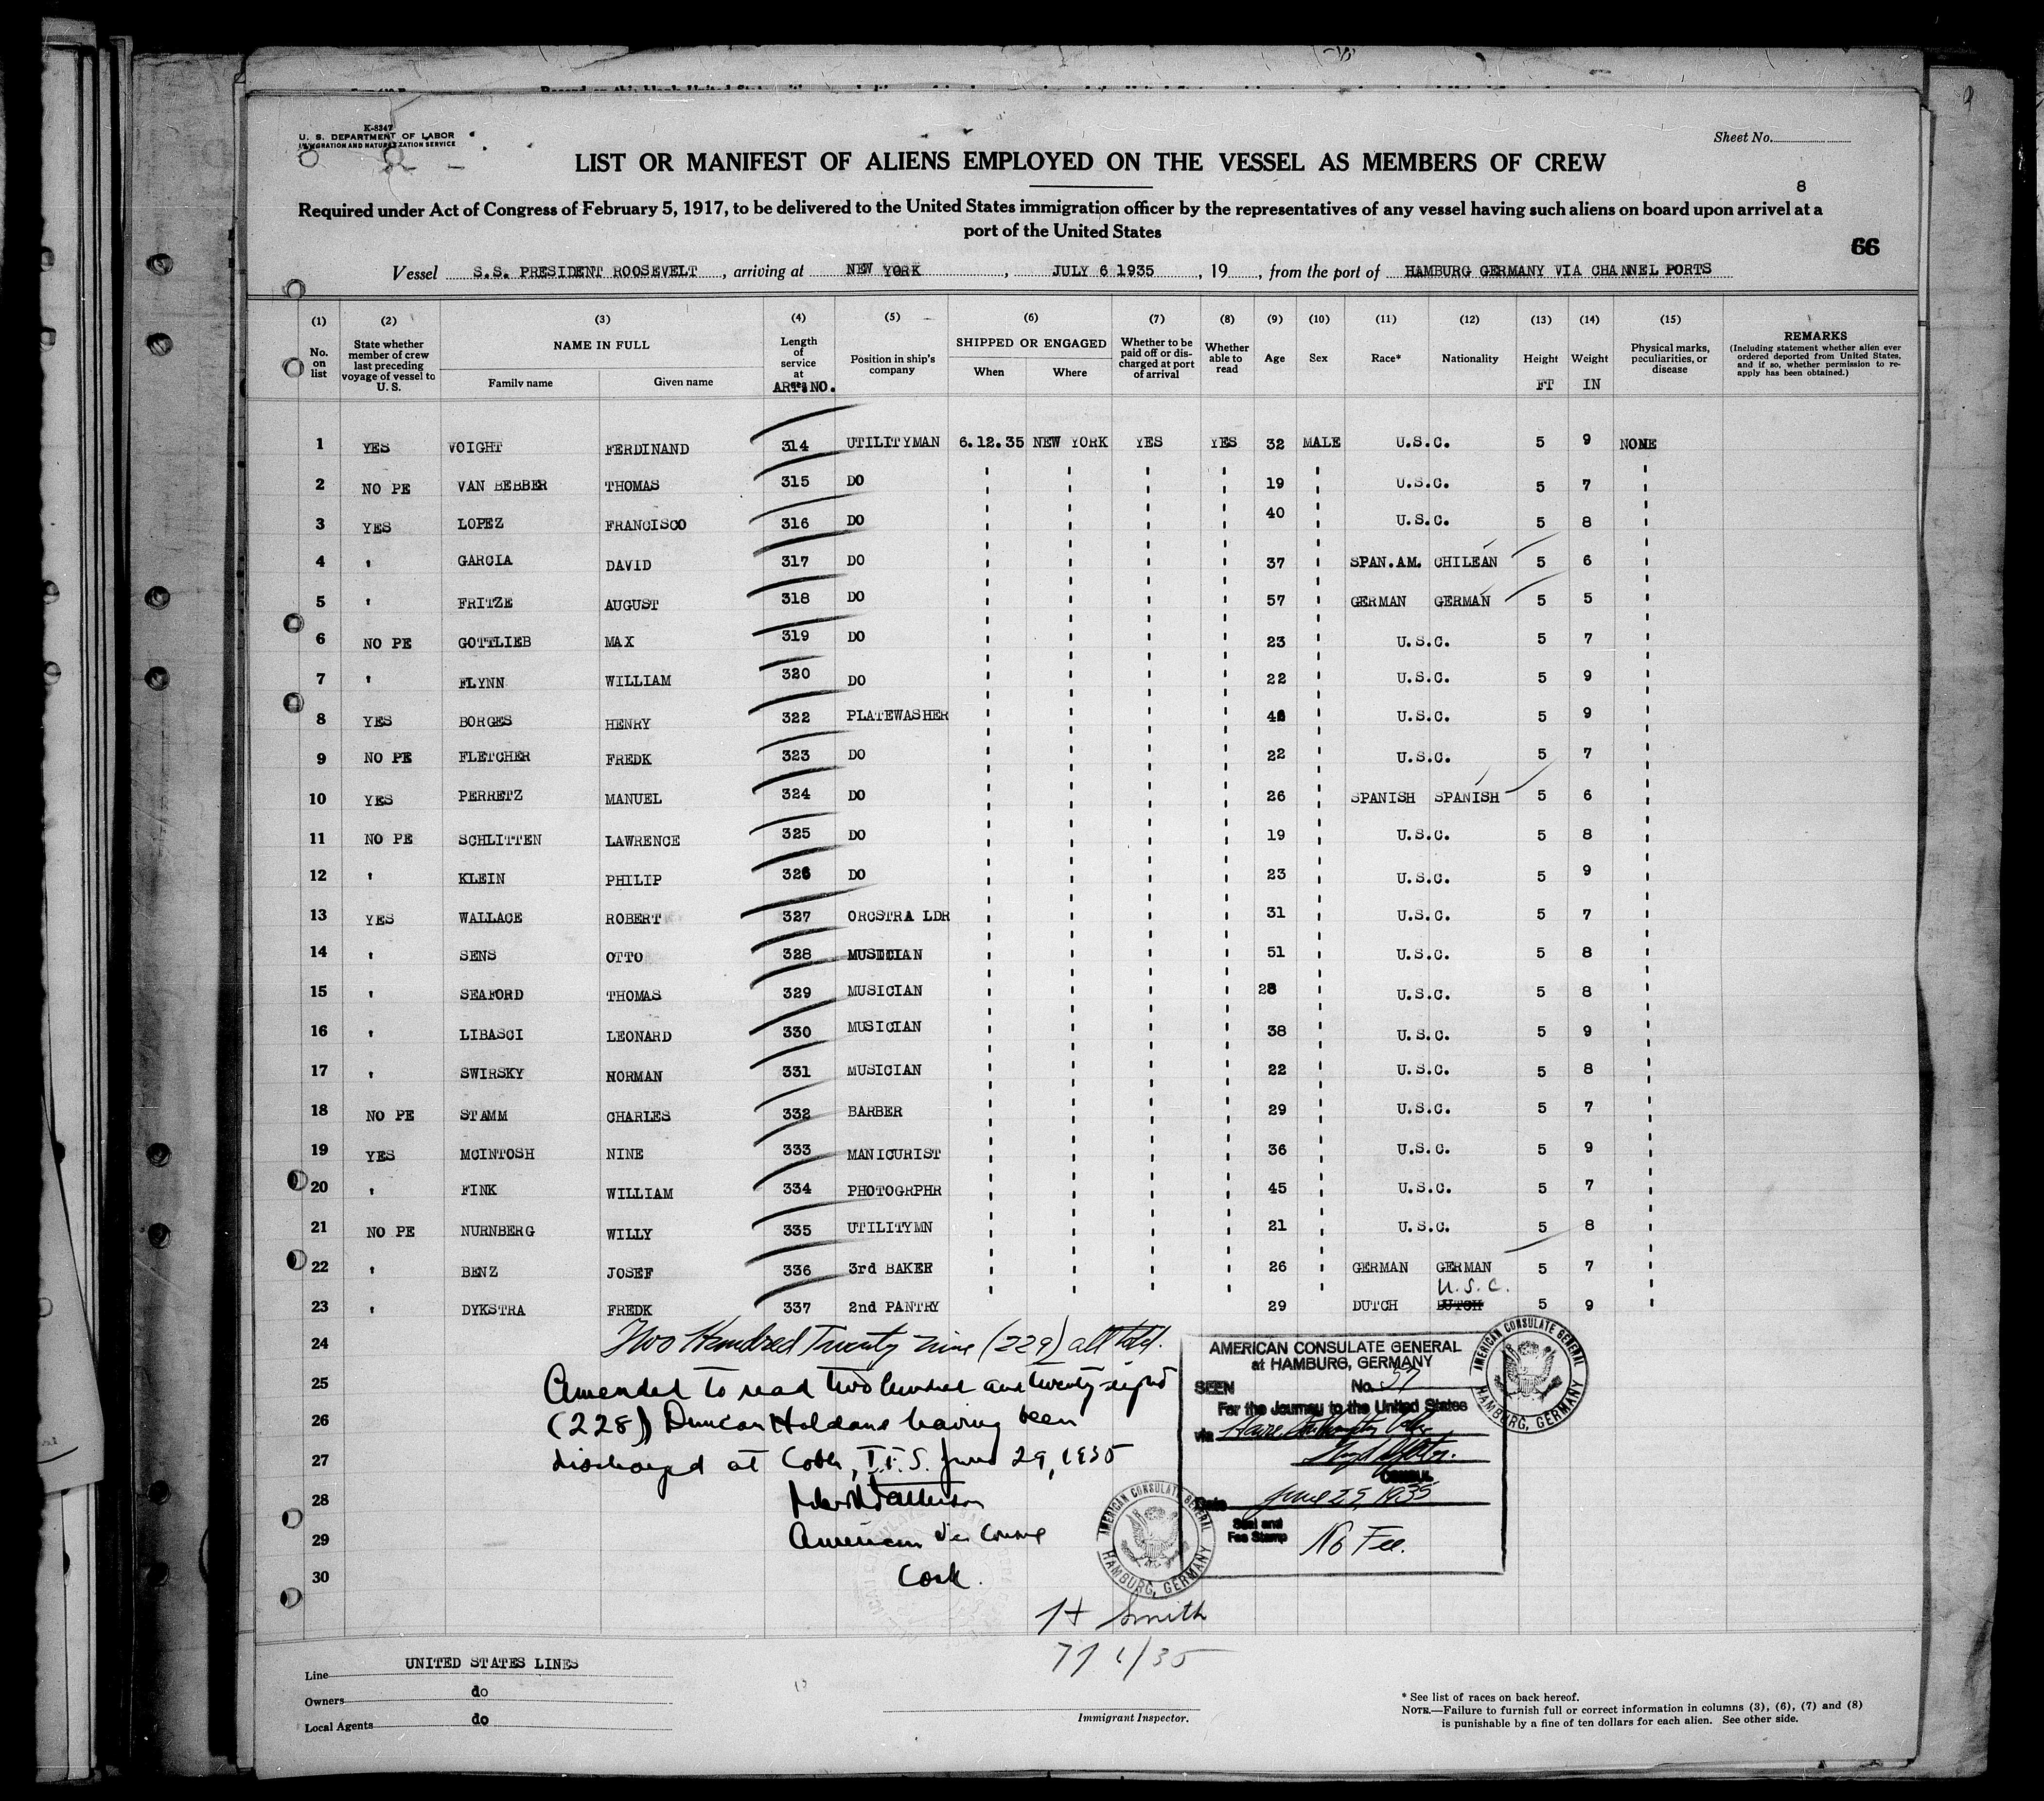 K-8347
U. S. DEPARTMENT OF LABOR
IMMIGRATION AND NATURALIZATION SERVICE
Sheet No.
LIST OR MANIFEST OF ALIENS EMPLOYED ON THE VESSEL AS MEMBERS OF CREW
8
Required under Act of Congress of February 5, 1917, to be delivered to the United States immigration officer by the representatives of any vessel having such aliens on board upon arrival at a
port of the United States
66
Vessel S.S. PRESIDENT ROOSEVELT, arriving at NEW YORK, JULY 6 1935, 19, from the port of HAMBURG GERMANY VIA CHANNEL PORTS
(1) (2) (3) (4) (5) (6) (7) (8) (9) (10) (11) (12) (13) (14) (15)
No. on list
State whether member of crew last preceding voyage of vessel to U. S.
NAME IN FULL
Family name
Given name
Length of service at
ART. NO.
Position in ship's company
SHIPPED OR ENGAGED
When
Where
Whether to be paid off or discharged at port of arrival
Whether able to read
Age
Sex
Race*
Nationality
Height
FT
Weight
IN
Physical marks, peculiarities, or disease
REMARKS
(Including statement whether alien ever ordered deported from United States, and if so, whether permission to re-apply has been obtained.)
1 YES VOIGHT FERDINAND 314 UTILITYMAN 6.12.35 NEW YORK YES YES 32 MALE U.S.C. 5 9 NONE
2 NO PE VAN BEBBER THOMAS 315 DO 19 U.S.C. 5 7
3 YES LOPEZ FRANCISCO 316 DO 40 U.S.C. 5 8
4 " GARCIA DAVID 317 DO 37 SPAN.AM. CHILEAN 5 6
5 " FRITZE AUGUST 318 DO 57 GERMAN GERMAN 5 5
6 NO PE GOTTLIEB MAX 319 DO 23 U.S.C. 5 7
7 " FLYNN WILLIAM 320 DO 22 U.S.C. 5 9
8 YES BORGES HENRY 322 PLATEWASHER U.S.C. 5 9
9 NO PE FLETCHER FREDK 323 DO 22 U.S.C. 5 7
10 YES PERRETZ MANUEL 324 DO 26 SPANISH SPANISH 5 6
11 NO PE SCHLITTEN LAWRENCE 325 DO 19 U.S.C. 5 8
12 " KLEIN PHILIP 326 DO 23 U.S.C. 5 9
13 YES WALLACE ROBERT 327 ORCSTRA LDR 31 U.S.C. 5 7
14 " SENS OTTO 328 MUSICIAN 51 U.S.C. 5 8
15 " SEAFORD THOMAS 329 MUSICIAN 28 U.S.C. 5 8
16 " LIBASCI LEONARD 330 MUSICIAN 38 U.S.C. 5 9
17 " SWIRSKY NORMAN 331 MUSICIAN 22 U.S.C. 5 8
18 NO PE STAMM CHARLES 332 BARBER 29 U.S.C. 5 7
19 YES MCINTOSH NINE 333 MANICURIST 36 U.S.C. 5 9
20 " FINK WILLIAM 334 PHOTOGRPHR 45 U.S.C. 5 7
21 NO PE NURNBERG WILLY 335 UTILITYMN 21 U.S.C. 5 8
22 " BENZ JOSEF 336 3rd BAKER 26 GERMAN GERMAN 5 7
U.S.C.
23 " DYKSTRA FREDK 337 2nd PANTRY 29 DUTCH DUTCH 5 9
24 Two Hundred Twenty nine (229) all told.
25 Amended to read two hundred and twenty-eight
26 (228) Duncan Haldane having been
27 discharged at Cobh, I.F.S. June 29, 1935
28
29 American Vice Consul
30 Cork.
AMERICAN CONSULATE GENERAL
at HAMBURG, GERMANY
SEEN No. 57
For the Journey to the United States
via Havre Southampton
CONSUL
Date June 25, 1935
Seal and
Fee Stamp
No Fee.
AMERICAN CONSULATE GENERAL HAMBURG, GERMANY
AMERICAN CONSULATE GENERAL HAMBURG, GERMANY
H Smith
Line UNITED STATES LINES
Owners do
Local Agents do
Immigrant Inspector.
* See list of races on back hereof.
NOTE.—Failure to furnish full or correct information in columns (3), (6), (7) and (8)
is punishable by a fine of ten dollars for each alien. See other side.